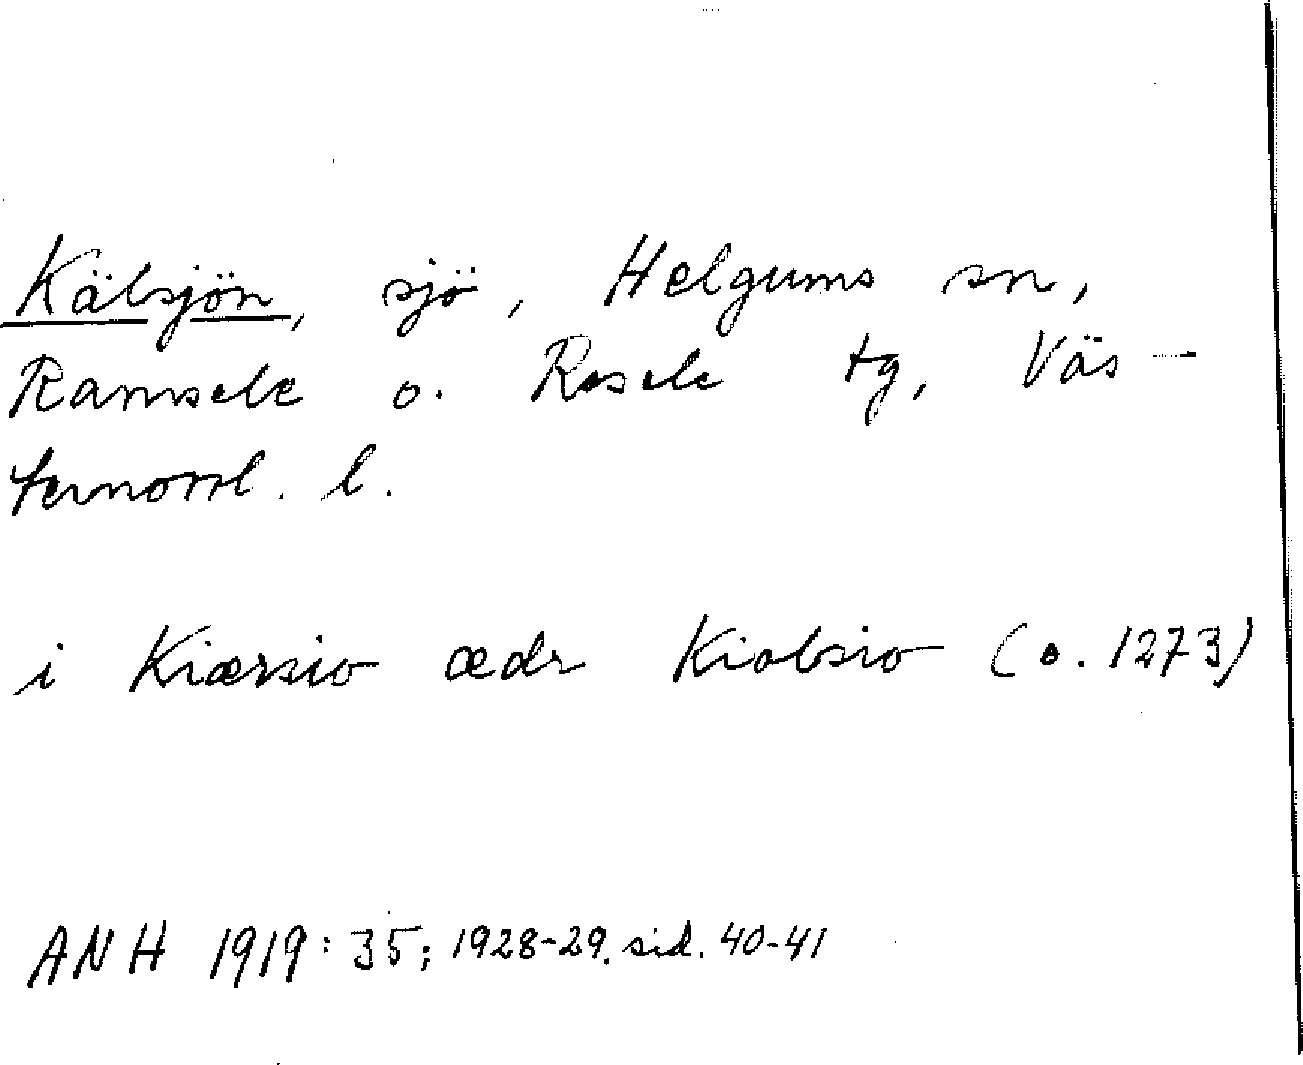 Källsjön, sjö, Helgums sn,
Ramsele o. Resele tg, Väs-
ternorrl. l.
i Kiærsio ædr Kiolsio (o. 1273)
ANH 1919:35; 1928-29. sid. 40-41